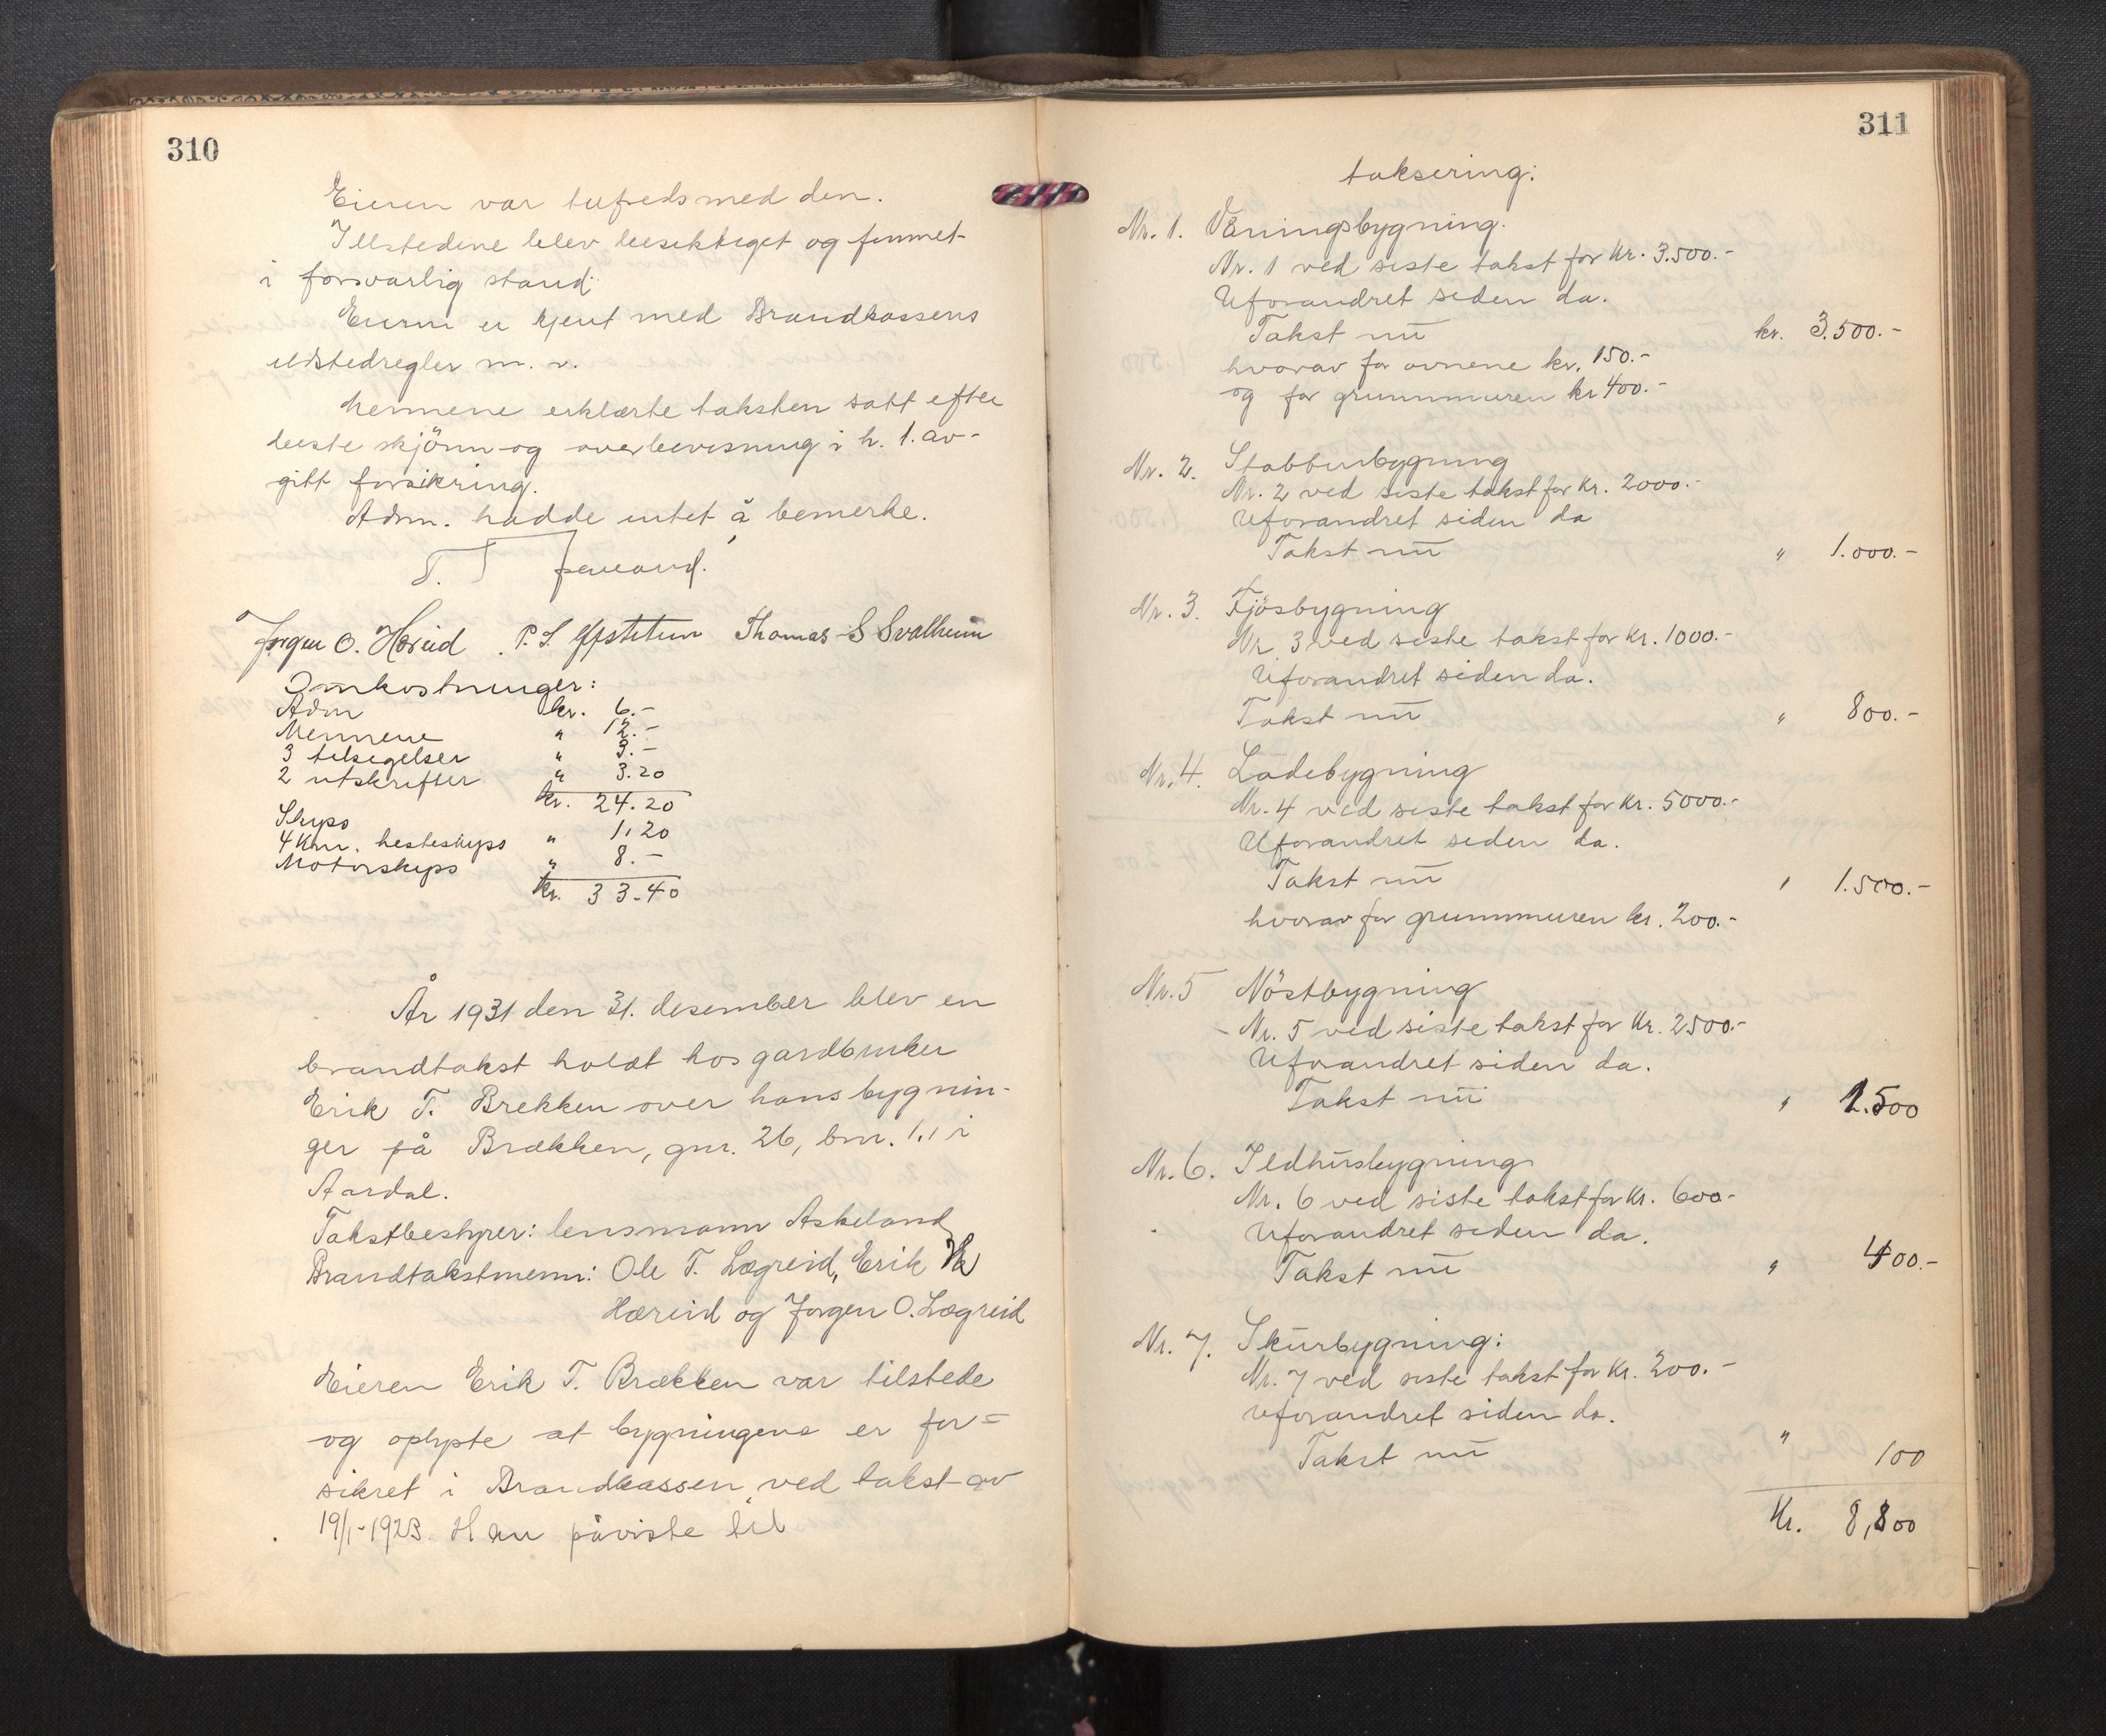 310
Eieren var tilfreds med den.
Ildstedene blev besiktiget og funnet
i forsvarlig stand.
Eieren er kjent med Brandkassens
ildstedregler m. v.
Mennene erklærte taksten satt efter
beste skjönn og overbevisning i h. t. av-
gitt forsikring.
Adm. hadde intet å bemerke.
Jörgen O. Hæreid P. S. Ypstetun Thomas S Svalheim
Omkostninger:
Adm kr. 6.-
Mennene " 12.-
3 tilsigelser " 3.-
2 utskrifter " 3.20
kr. 24.20
Skyss
4 Km. hesteskyss " 1.20
Motorskyss " 8.-
kr. 33.40
År 1931 den 31. desember blev en
brandtakst holdt hos gardbruker
Erik T. Brekken over hans bygnin-
ger på Brækken, gnr. 26, bnr. 1.1 i
Aardal.
Takstbestyrer: lensmann Askeland
Brandtakstmenn: Ole T. Lægreid, Erik
Hæreid og Jörgen O. Lægreid
Eieren Erik T. Brækken var tilstede
og oplyste at bygningene er for=
sikret i Brandkassen ved takst av
19/1-1923. Han påviste til
311
taksering:
Nr. 1. Våningsbygning.
Nr. 1 ved siste takst for Kr. 3.500.-
Uforandret siden da.
Takst nu kr. 3.500.-
hvorav for ovnene kr. 150.-
og for grunnmuren kr 400.-
Nr. 2. Stabbursbygning
Nr. 2 ved siste takst for Kr. 2000.-
Uforandret siden da
Takst nu " 1.000.-
Nr. 3. Fjösbygning
Nr. 3 ved siste takst for Kr. 1000.-
Uforandret siden da.
Takst nu " 800.-
Nr. 4. Ladebygning
Nr. 4 ved siste takst for Kr. 5000.-
Uforandret siden da.
Takst nu " 1.500.-
hvorav for grunnmuren kr. 200.-
Nr. 5 Nöstbygning
Nr. 5 ved siste takst for Kr. 2500.-
Uforandret siden da.
Takst nu " 1.500
Nr. 6. Ildhusbygning
Nr. 6 ved siste takst for Kr. 600-
Uforandret siden da.
Takst nu " 400.-
Nr. 7. Skurbygning:
Nr. 7 ved siste takst for Kr. 200.-
uforandret siden da.
Takst nu " 100
Kr. 8,800